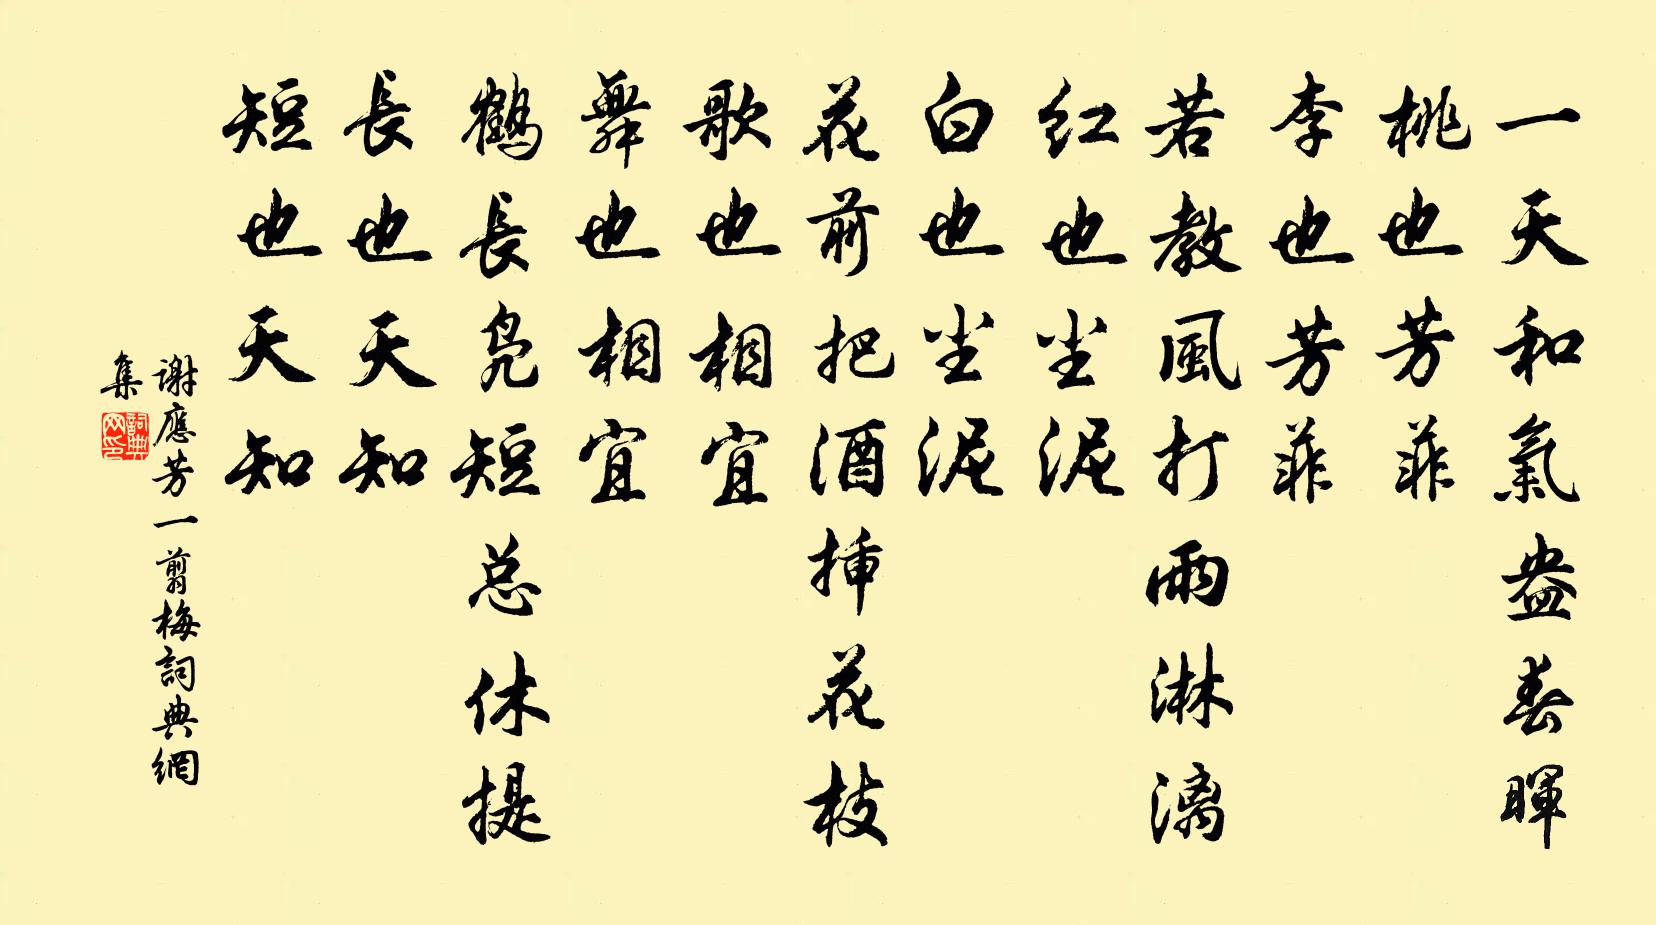 一天和氣盎春暉
桃也芳菲
李也芳菲
若教風打雨淋漓
红也尘泥
白也尘泥
花前把酒插花枝
歌也相宜
舞也相宜
鶴長凫短总休提
長也天知
短也天知
谢應芳一剪梅詞典網
集
詞典
网印